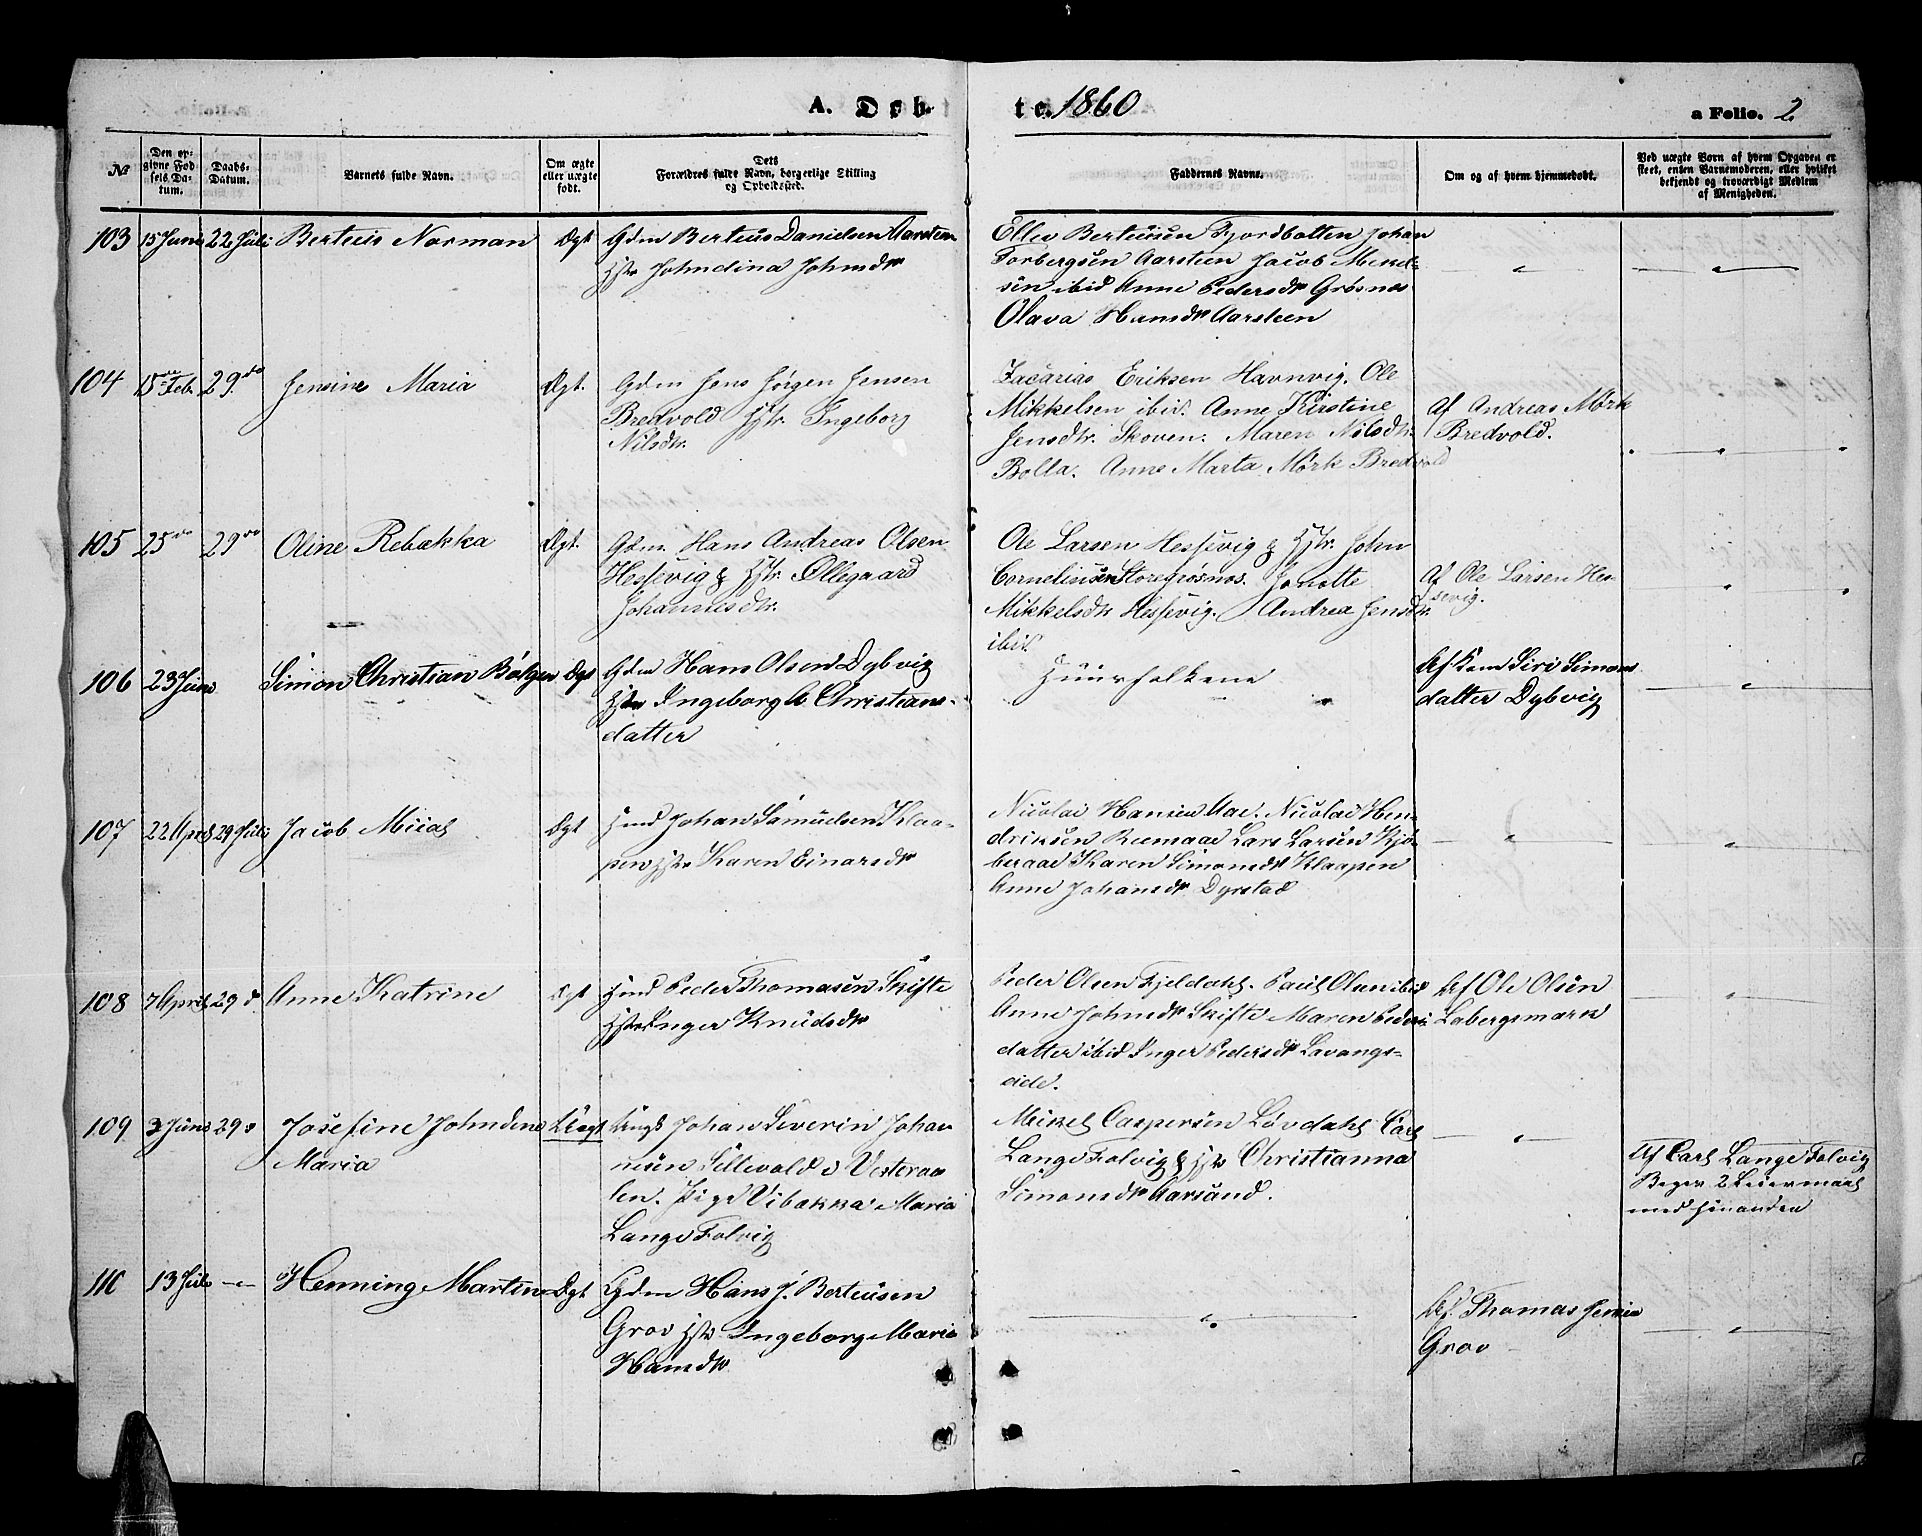 A. Døb
te. 1860
a Folio. 2
№
Den op-
givne Fød
sels Da-
tum.
Daabs-
Datum.
Barnets fulde Navn.
Om ægte
eller uægte
født.
Dets
Forældres fulde Navn, borgerlige Stilling
og Opholdssted.
Faddernes Navne.
Om og af hvem hjemmedøbt.
Ved uægte Børn af hvem Opgaven er
skeet, enten Barnemoderen, eller hvilket
bekjendt og troværdigt Medlem
af Menigheden.
103 15 Juni 22 Juli Berteus Norman Ægt Gdm Berteus Danielsen Aarsteen
Hstr Johndina Johnsdtr
Ellev Berteusen Fjordbotten Johan
Torbergsen Aarsteen Jacob Mekel-
sen ibid Anne Pedersdtr Grøsnes
Olava Hansdtr Aarsteen
104 15de Feb. 29. do Jensine Maria Ægt. Gdm Jens Jørgen Jensen
Bredvold Hstr. Ingeborg
Nilsdtr.
Zacarias Eriksen Havnvig. Ole
Mikkelsen ibid. Anne Kirstine
Jensdtr. Skoven. Maren Nilsdtr.
Bolla. Anne Marta Mørk Bredvold
Af Andreas Mørk
Bredvold.
105 25 do 29 do Oline Rebækka Ægt. Gdm. Hans Andreas Olsen
Hessevig & Hstr. Øllegaard
Johannesdtr.
Ole Larsen Hessevig & Hstr. John
Corneliusen Storegrøsnes. Jonette
Mikkelsdtr Hessevig. Andrea Jensdtr.
ibid.
Af Ole Larsen Hes-
sevig.
106 23 Juni Simon Christian Bølger Ægt Gdm Hans Olsen Dybvig
Hstr Ingeborg A Christians-
datter
Huusfolkene
Af Kone Siri Simons
datter Dybvig
107 22 April 29 Juli Jacob Mical Ægt Hmd Johan Samuelsen Klaa-
pen Hstr Karen Einarsdtr
Nicolai Hansen Aae. Nicolai Hen-
driksen Reemaae Lars Larsen Kjø-
beraae Karen Simonsdtr Klaapen
Anne Johansdtr Dyrstad
108 7 April 29 d. Anne Katrine Ægt Hmd Peder Thomasen Skifte
Hstr Inger Knudsdtr
Peder Olsen Fjeldahl. Paul Olsen ibid
Anne Johnsdtr Skifte Maren Peders
datter ibid Inger Pedersdtr Lavangs-
eide.
Af Ole Olsen
Labergsmark
109 3 Juni 29 d Josefine Johndine
Maria
Uægt Ungk Johan Severin Johan
nesen Sillevold i Vesteraa
len. Pige Vibekka Maria
Lange Folvig
Mikel Caspersen Løvdahl Carl
Lange Folvig & Hstr Christianna
Simonsdtr Aarsand.
Af Carl Lange Folvig
Beges 2 Leiermaal
med hinanden
110 13 Juli Henning Martin Ægt Gdm Hans J. Berteusen
Grov Hstr Ingeborg Maria
Hansdtr
Af Thomas Jensen
Grov